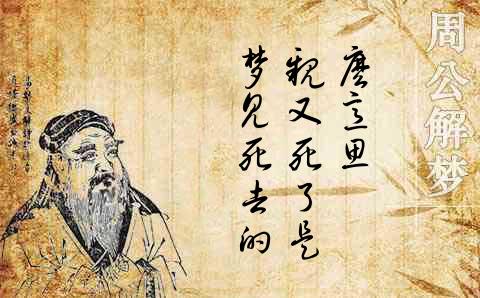 周公解梦
梦见死去的
親又死了是
麼意思